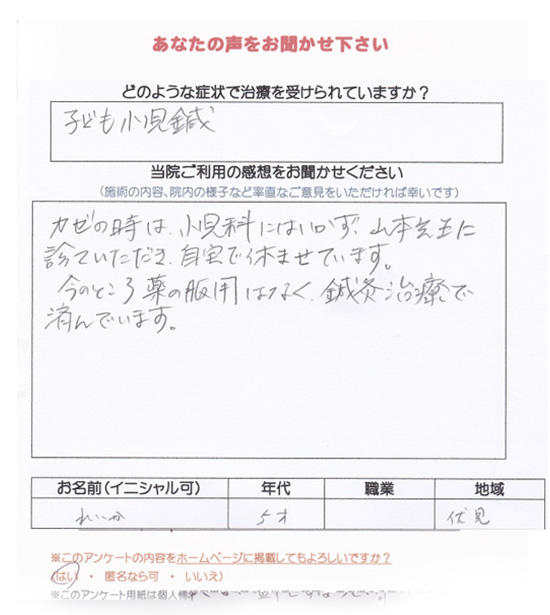 あなたの声をお聞かせ下さい
どのような症状で治療を受けられていますか？
子ども小児鍼
当院ご利用の感想をお聞かせください
(施術の内容、院内の様子など率直なご意見をいただければ幸いです)
カゼの時は、小児科にはいかず、山本先生に
診ていただき、自宅で休ませています。
今のところ薬の服用はなく、鍼灸治療で
済んでいます。
お名前(イニシャル可) 年代 職業 地域
れいか 5才 伏見
※このアンケートの内容をホームページに掲載してもよろしいですか？
(はい ・ 匿名なら可 ・ いいえ)
※このアンケート用紙は個人情